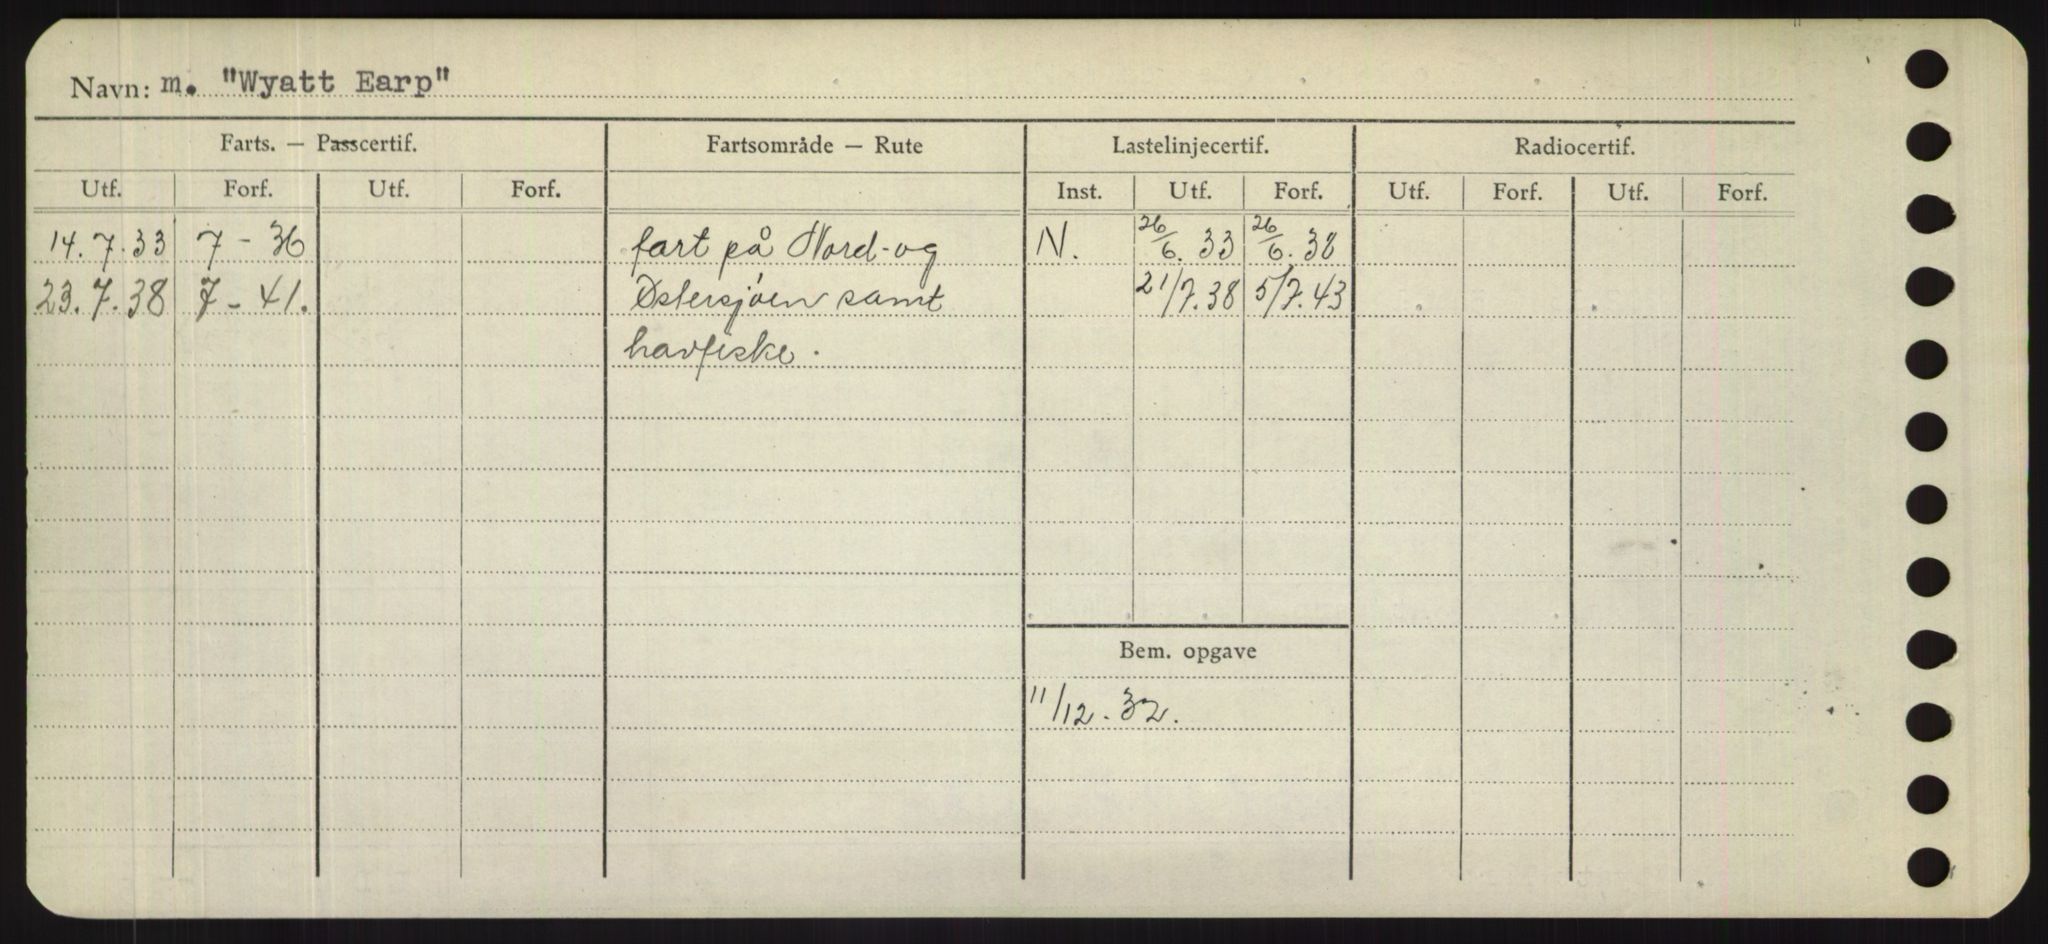 Navn: m. "Wyatt Earp"
Farts. — Passcertif. Fartsområde — Rute Lastelinjecertif. Radiocertif.
Utf. Forf. Utf. Forf. Inst. Utf. Forf. Utf. Forf. Utf. Forf.
14.7.33 7-36 fart på Nord- og N. 26/6.33 26/6.38
23.7.38 7-41. Østersjøen samt 21/7.38 5/7.43
havfiske.
Bem. opgave
11/12.32.